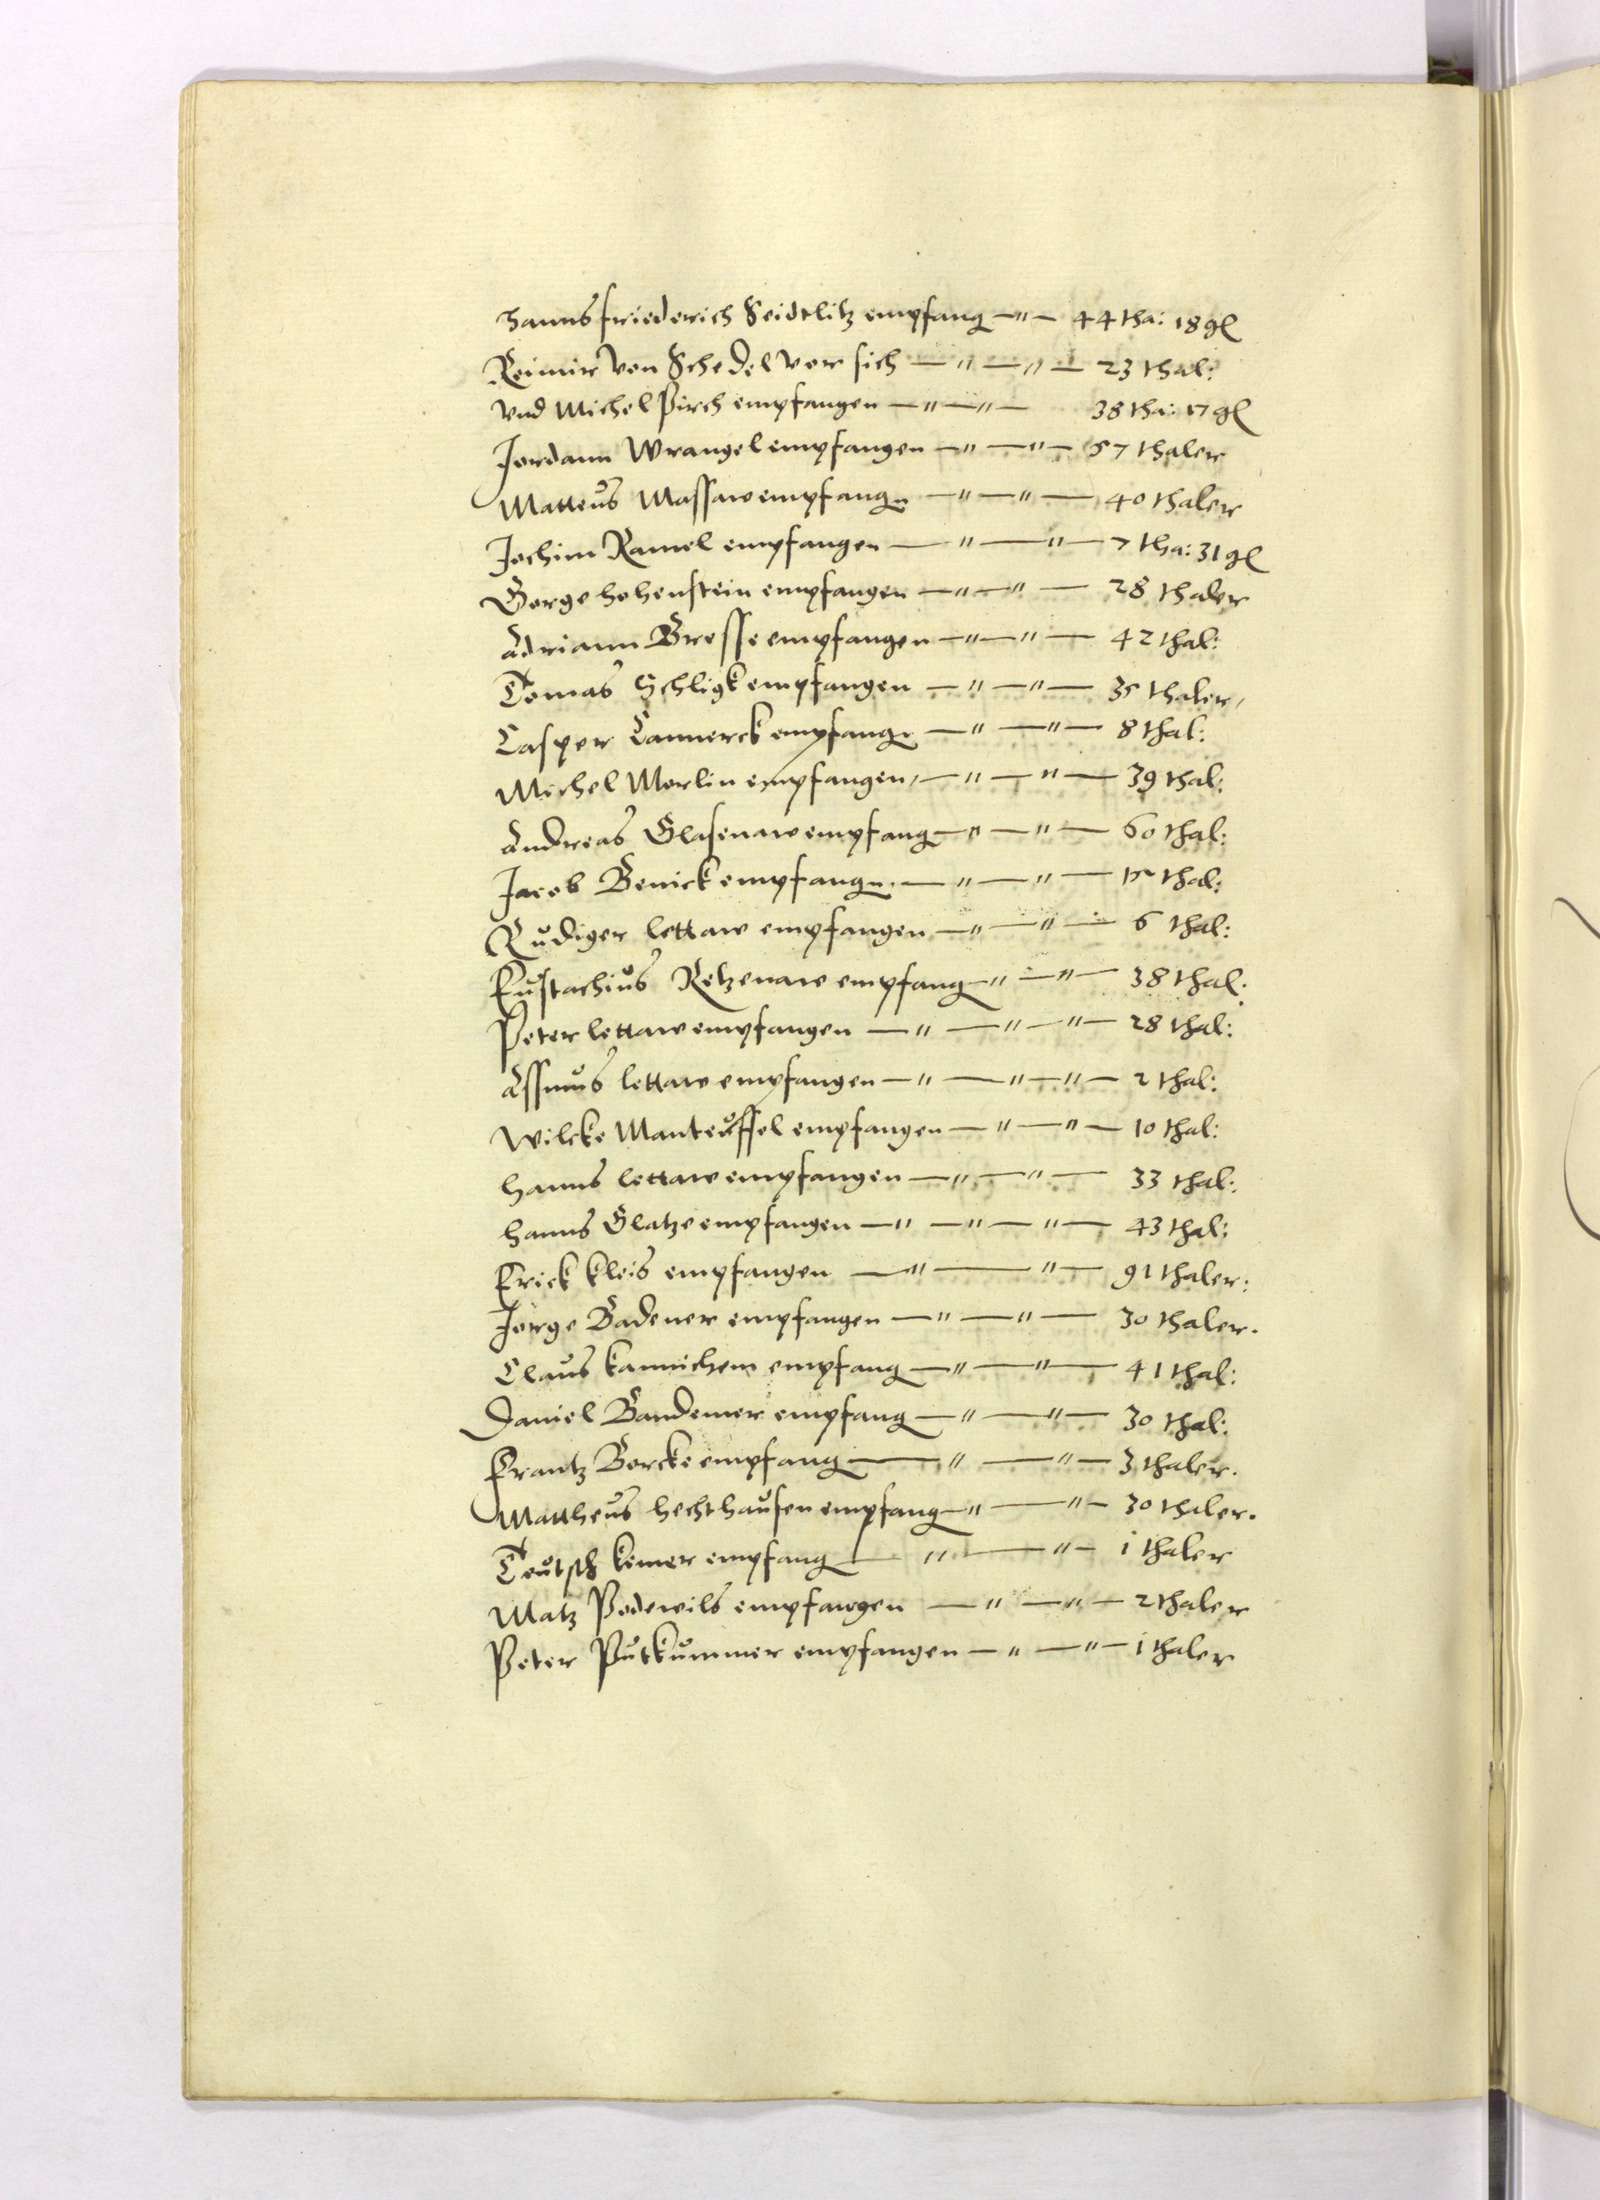 Hanns friederich Seidtlitz empfang —"— 44 tha: 18 gl
Reimir von Schedel vor sich —"—"— 23 thal:
vnd Michel Pirch empfangen —"—"— 38 tha: 17 gl
Jordann Wrangel empfangen —"—"— 57 thaler
Matteus Massaw empfangn —"—"— 40 thaler
Jochim Ramel empfangen —"—"— 7 tha: 31 gl
George hohenstein empfangen —"—"— 28 thaler
Adriann Bresse empfangen —"—"— 42 thal:
Tomas Schligk empfangen —"—"— 35 thaler,
Casper Cannerck empfang. —"—"— 8 thal:
Michel Morlin empfangen, —"—"— 39 thal:
Andreas Glasenaw empfang —"—"— 60 thal:
Jacob Benick empfangn. —"—"— thal:
Rudiger lettaw empfangen —"—"— 6 thal:
Eustachius Retzenaw empfang —"—"— 38 thal.
Peter lettaw empfangen —"—"—"— 28 thal:
Assmus lettaw empfangen —"—"—"— 2 thal:
Wilcke Manteuffel empfangen —"—"— 10 thal:
hanns lettaw empfangen —"—"— 33 thal:
hanns Glatze empfangen —"—"—"— 43 thal:
Erick kleis empfangen —"—"— 91 thaler:
Jorge Badener empfangen —"—"— 30 thaler.
Claus kannichem empfang —"—"— 41 thal:
Daniel Bandemer empfang —"—"— 30 thal:
Frantz Borcke empfang —"—"— 3 thaler.
Mattheus hechthausen empfang —"—"— 30 thaler.
Teutsch kemer empfang —"—"— 1 thaler
Matz Podewils empfangen —"—"— 2 thaler
Peter Putkummer empfangen —"—"— 1 thaler